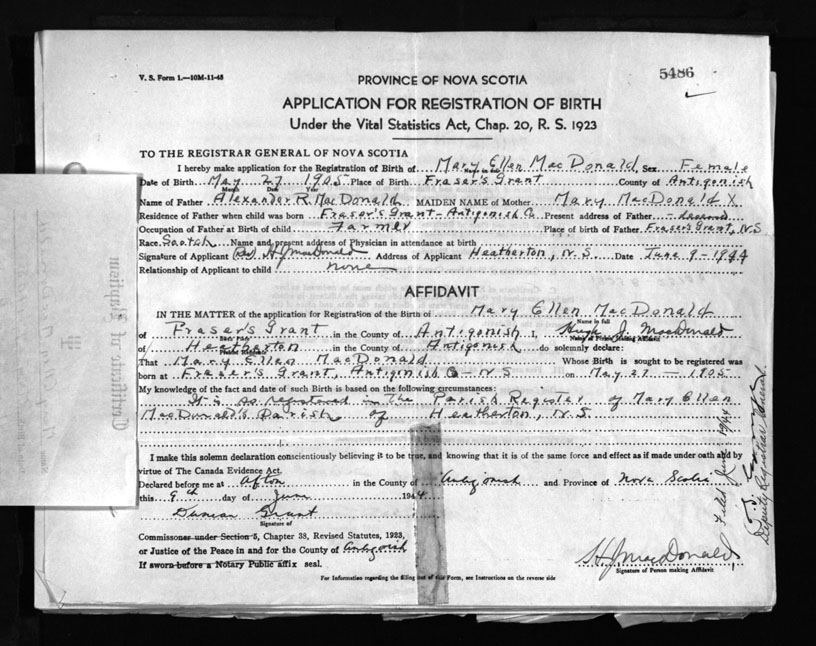 V. S. Form 1.—10M-11-43
5486
PROVINCE OF NOVA SCOTIA
APPLICATION FOR REGISTRATION OF BIRTH
Under the Vital Statistics Act, Chap. 20, R. S. 1923
TO THE REGISTRAR GENERAL OF NOVA SCOTIA
I hereby make application for the Registration of Birth of Mary Ellen MacDonald Sex Female
Name in full
Date of Birth May 27 1905 Place of Birth Fraser's Grant County of Antigonish
Month Date Year
Name of Father Alexander R. MacDonald MAIDEN NAME of Mother Mary MacDonald X
Residence of Father when child was born Fraser's Grant - Antigonish Co Present address of Father - deceased
Occupation of Father at Birth of child Farmer Place of birth of Father Fraser's Grant, N.S
Race Scotch Name and present address of Physician in attendance at birth
Signature of Applicant H J MacDonald Address of Applicant Heatherton, N.S. Date June 9 - 1944
Relationship of Applicant to child none
AFFIDAVIT
IN THE MATTER of the application for Registration of the Birth of Mary Ellen MacDonald
Name in full
of Fraser's Grant in the County of Antigonish I, Hugh J. MacDonald
Name of Person Making Affidavit
of Heatherton in the County of Antigonish do solemnly declare:
That Mary Ellen MacDonald Whose Birth is sought to be registered was
born at Fraser's Grant, Antigonish Co - N.S on May 27 - 1905
My knowledge of the fact and date of such Birth is based on the following circumstances:
It is so registered in The Parish Register of Mary Ellen
MacDonald's Parish of Heatherton, N.S.
I make this solemn declaration conscientiously believing it to be true, and knowing that it is of the same force and effect as if made under oath and by
virtue of The Canada Evidence Act.
Declared before me at Afton in the County of Antigonish and Province of Nova Scotia
this 9th day of June 1944
Duncan Grant
Signature of
Commissoner under Section 5, Chapter 38, Revised Statutes, 1923,
or Justice of the Peace in and for the County of Antigonish
If sworn before a Notary Public affix seal.
H J MacDonald
Signature of Person making Affidavit
For Information regarding the filling out of this Form, see Instructions on the reverse side
Certificate of Baptism
Filed June 1944
Deputy Registrar General